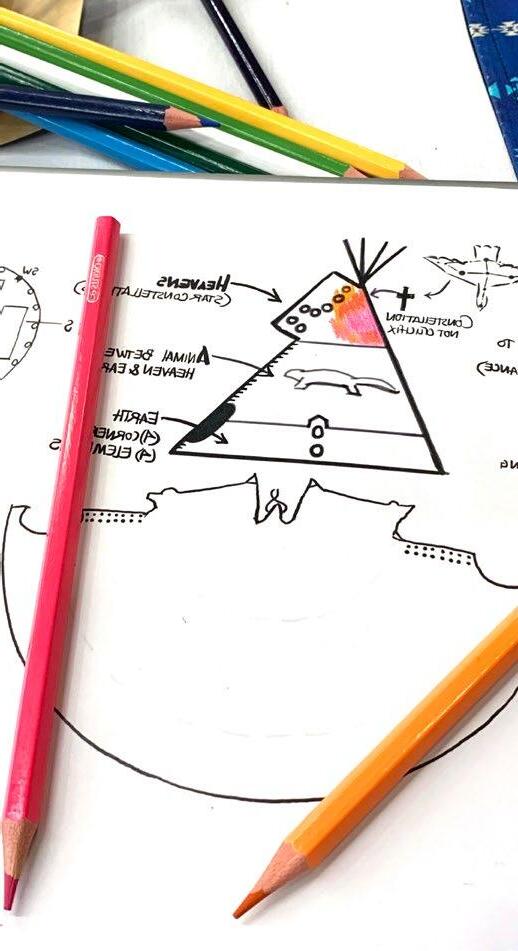 SW
S
HEAVENS
(STAR CONSTELLATI
CONSTELLATION
NOT CRUCIFIX
TO
ANCE)
ANIMAL BETWE
HEAVEN & EAR
EARTH
(4) CORNER
(4) ELEM
S
NG